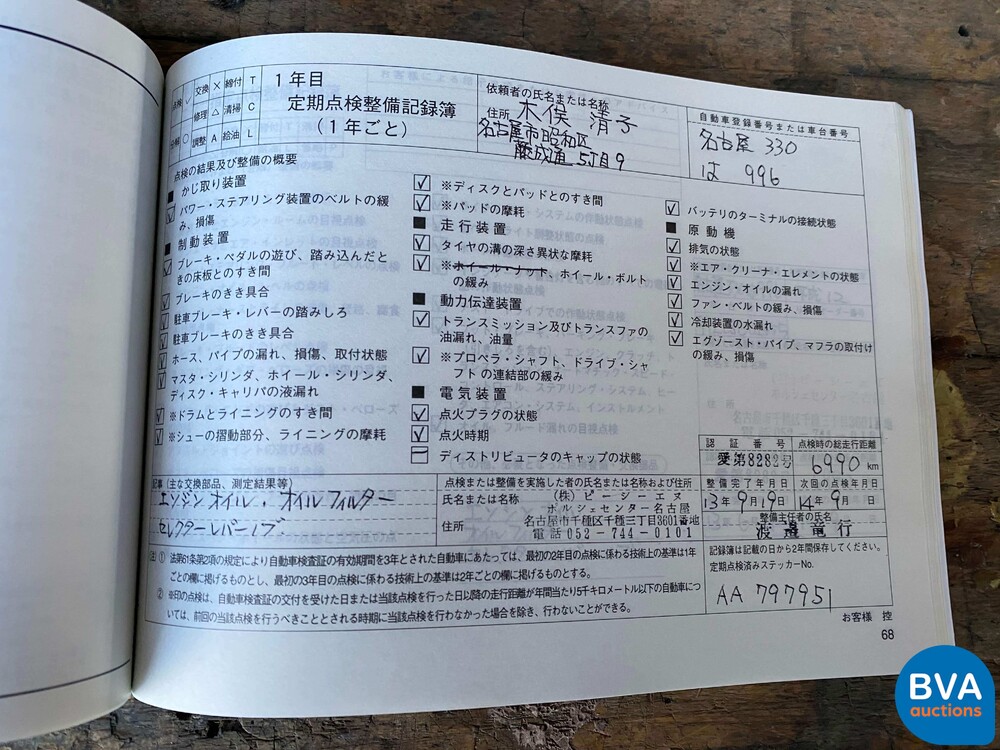 点検 ✓ 交換 × 締付 T
修理 △ 清掃 C
分解 ○ 調整 A 給油 L
1年目
定期点検整備記録簿
(1年ごと)
依頼者の氏名または名称
木俣 清子
住所
名古屋市昭和区
藤成通 5丁目9
自動車登録番号または車台番号
名古屋 330
は 996
点検の結果及び整備の概要
■ かじ取り装置
✓ パワー・ステアリング装置のベルトの緩
み、損傷
■ 制動装置
✓ ブレーキ・ペダルの遊び、踏み込んだと
きの床板とのすき間
✓ ブレーキのきき具合
✓ 駐車ブレーキ・レバーの踏みしろ
✓ 駐車ブレーキのきき具合
✓ ホース、パイプの漏れ、損傷、取付状態
✓ マスタ・シリンダ、ホイール・シリンダ、
ディスク・キャリパの液漏れ
✓ ※ドラムとライニングのすき間
✓ ※シューの摺動部分、ライニングの摩耗
✓ ※ディスクとパッドとのすき間
✓ ※パッドの摩耗
■ 走行装置
✓ タイヤの溝の深さ異状な摩耗
✓ ※ホイール・ナット、ホイール・ボルト
の緩み
■ 動力伝達装置
✓ トランスミッション及びトランスファの
油漏れ、油量
✓ ※プロペラ・シャフト、ドライブ・シャ
フトの連結部の緩み
■ 電気装置
✓ 点火プラグの状態
✓ 点火時期
ディストリビュータのキャップの状態
✓ バッテリのターミナルの接続状態
■ 原動機
✓ 排気の状態
✓ ※エア・クリーナ・エレメントの状態
✓ エンジン・オイルの漏れ
✓ ファン・ベルトの緩み、損傷
✓ 冷却装置の水漏れ
✓ エグゾースト・パイプ、マフラの取付け
の緩み、損傷
認証番号 点検時の総走行距離
愛第8282号 6990 km
整備完了年月日 次回の点検年月日
13年9月19日 14年9月 日
整備主任者の氏名
渡邉竜行
記事 (主な交換部品、測定結果等)
エンジンオイル・オイルフィルター
セレクターレバーノブ
点検または整備を実施した者の氏名または名称および住所
氏名または名称 (株)ピーシーエヌ
ポルシェセンター名古屋
住所 名古屋市千種区千種三丁目3601番地
電話 052-744-0101
記録簿は記載の日から2年間保存してください。
定期点検済みステッカーNo.
AA 797951
注) ① 法第61条第2項の規定により自動車検査証の有効期間を3年とされた自動車にあたっては、最初の2年目の点検に係わる技術上の基準は1年
ごとの欄に掲げるものとし、最初の3年目の点検に係わる技術上の基準は2年ごとの欄に掲げるものとする。
② ※印の点検は、自動車検査証の交付を受けた日または当該点検を行った日以降の走行距離が年間当たり5千キロメートル以下の自動車につ
いては、前回の当該点検を行うべきこととされる時期に当該点検を行わなかった場合を除き、行わないことができる。
お客様 控
68
BVA
auctions